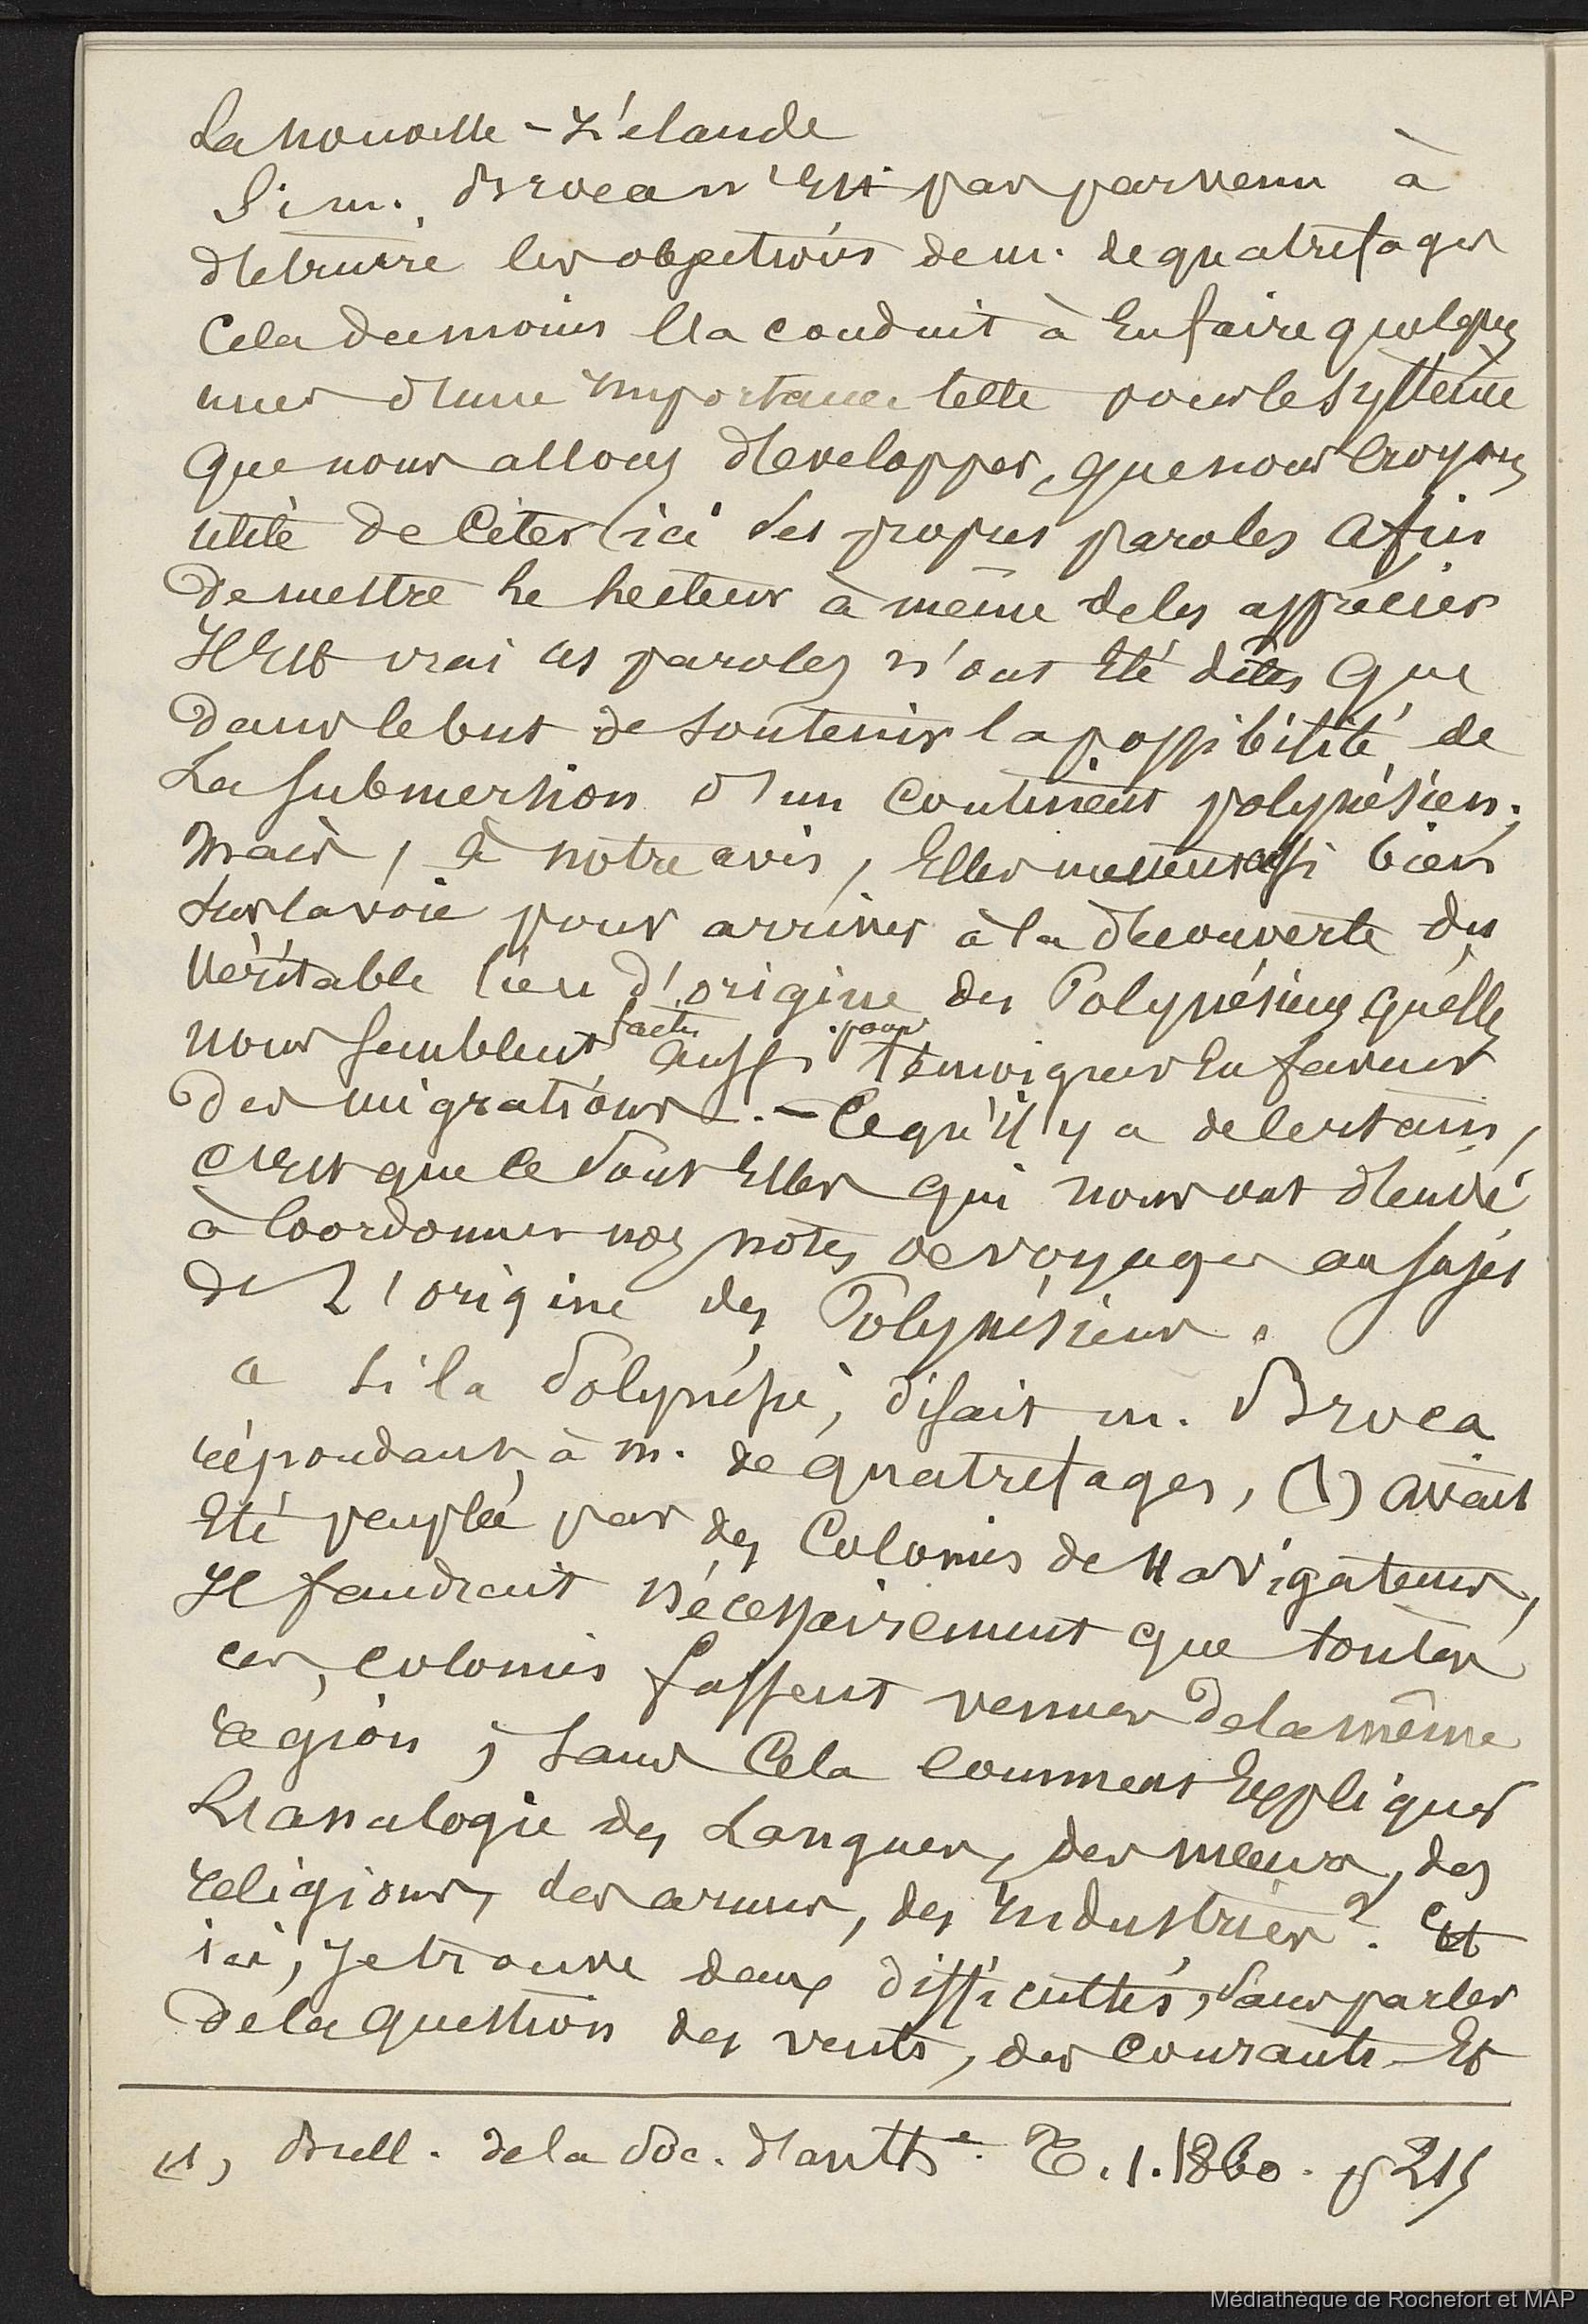 La nouvelle-Zélande
Si m. Broca n'est pas parvenu à
détruire les objections de m. de quatrefages
Cela du moins l'a conduit à En faire quelques
unes d'une importance telle pour le système
que nous allons développer, que nous Croyons
utile de Citer ici ses propres paroles afin
de mettre le lecteur à même de les apprécier
Il est vrai ces paroles n'ont été dites que
dans le but de soutenir la possibilité de
La submersion d'un continent polynésien;
mais, à notre avis, Elles mettent aussi bien
sur la voie pour arriver à la découverte du
véritable lieu d'origine des Polynésiens qu'elles
nous semblent faites aussi pour témoigner En faveur
des migrations. - Ce qu'il y a de certain,
c'est que ce sont Elles qui nous ont décidé
à Coordonner nos notes de voyages au sujet
de L'origine des Polynésiens.
« Si la Polynésie, disait m. Broca
répondant à m. de quatrefages, (1) avait
été peuplée par des Colonies de Navigateurs,
Il faudrait nécessairement que toutes
ces colonies fussent venues de la même
région; sans Cela comment Expliquer
L'analogie des Langues, des mœurs, des
religions, des armes, des Industries? Et
ici, je trouve deux difficultés, sans parler
de la question des vents, des courants Et
(1) Bull. de la Soc. d'anth.e T. 1. 1860. p 215
Médiathèque de Rochefort et MAP